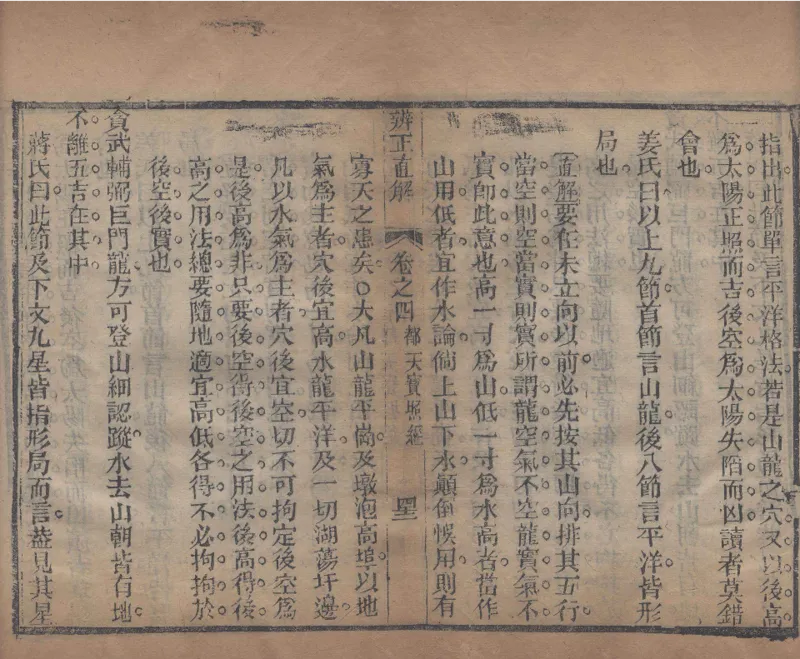 指出此節單言平洋格法若是山龍之穴又以後高
爲太陽正照而吉後空爲太陽失陷而凶讀者莫錯
會也
姜氏曰以上九節首節言山龍後八節言平洋皆形
局也
直解要在未立向以前必先按其山向排其五行
當空則空當實則實所謂龍空氣不空龍實氣不
實卽此意也高一寸爲山低一寸爲水高者當作
山用低者宜作水論倘上山下水顛倒悞用則有
辨正直解
卷之四 都天寶照經
寡夭之患矣○大凡山龍平崗及墩泡高埠以地
氣爲主者穴後宜高水龍平洋及一切湖蕩圩邊
凡以水氣爲主者穴後宜空切不可拘定後空爲
是後高爲非只要後空得後空之用法後高得後
高之用法總要隨地適宜高低各得不必拘拘於
後空後實也
貪武輔弼巨門龍方可登山細認蹤水去山朝皆有地
不離五吉在其中
蔣氏曰此節及下文九星皆指形局而言葢見其星